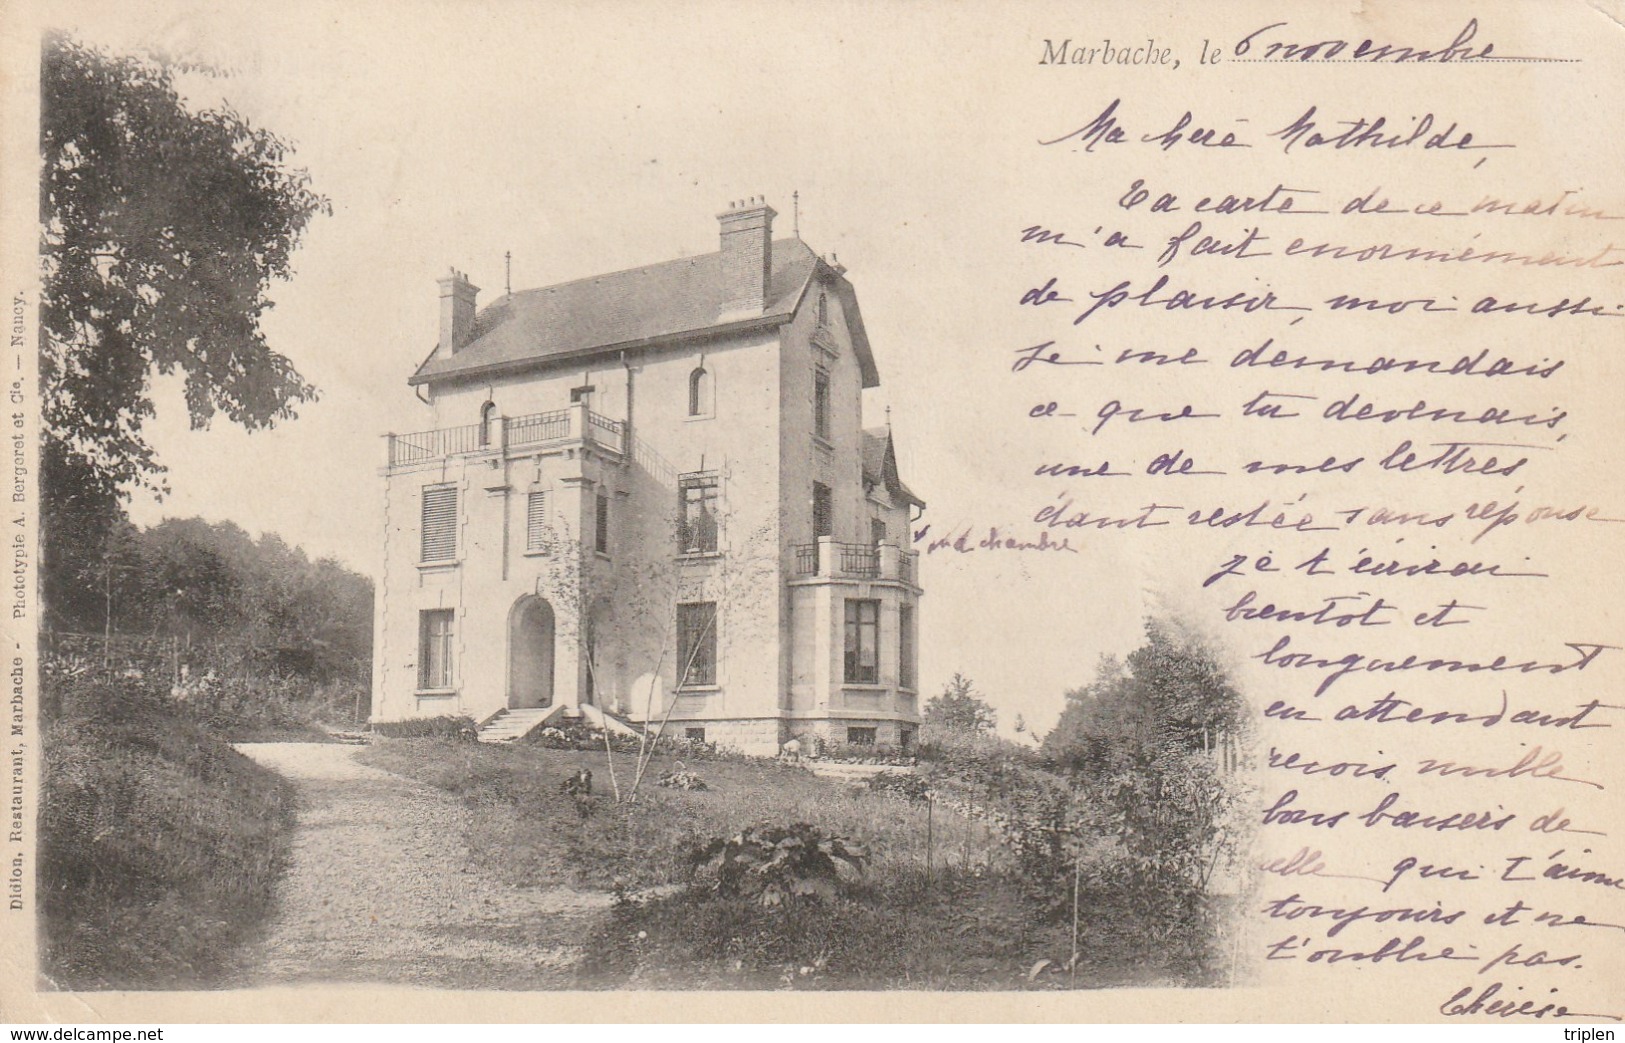 Marbache, le 6 novembre
Ma chère Mathilde,
Ta carte de ce matin
m'a fait enormément
de plaisir, moi aussi
je me demandais
ce que tu devenais,
une de mes lettres,
étant restée sans réponse
ma chambre
je t'écrirai
bientôt et
longuement
en attendant
recois mille
bons baisers de
celle qui t'aime
toujours et ne
t'oublie pas.
Thérèse
Didion, Restaurant, Marbache - Phototypie A. Bergeret et Cie. — Nancy.
https://www.delcampe.net
triplen